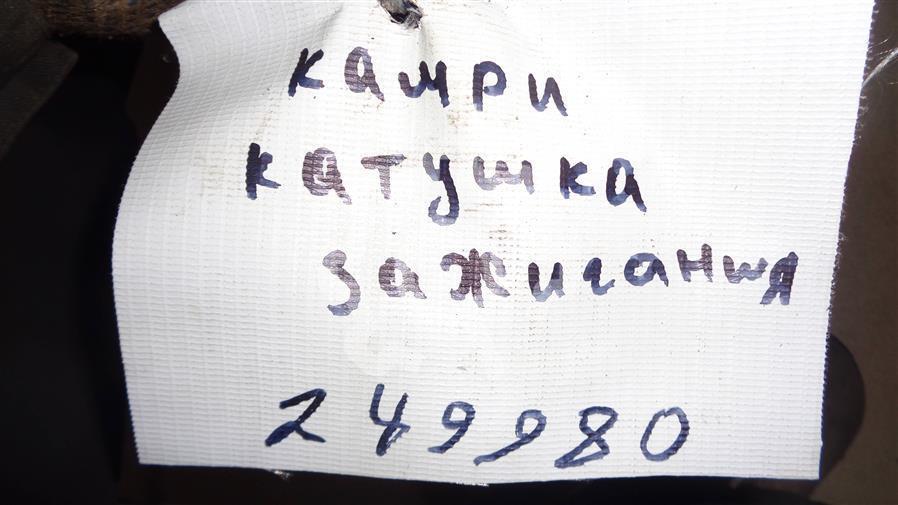 камри
катушка
зажигания
249980